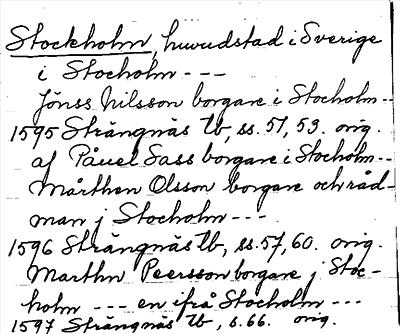 Stockholm, huvudstad i Sverige
i Stocholm ---
Jönss Nilsson borgare i Stocholm --
1595 Strängnäs tb, ss. 51, 53. orig.
af Påuel Sass borgare i Stocholm --
Mårthen Olsson borgare och råd-
man j Stocholm ---
1596 Strängnäs tb, ss. 57, 60. orig.
Marthn Peersson borgare j Stoc-
holm --- en ifrå Stocholm ---
1597 Strängnäs tb, s. 66. orig.